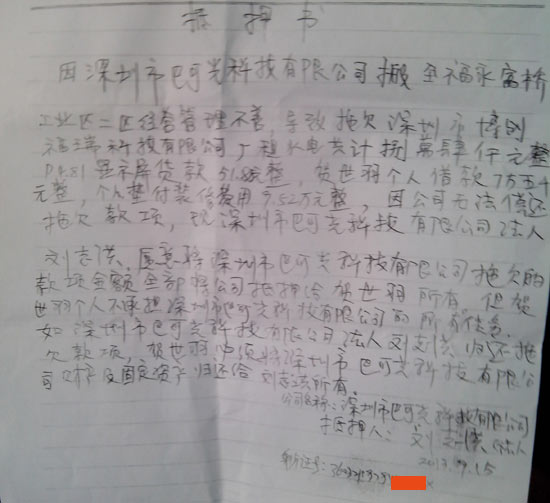 抵押书
因深圳市巴可克科技有限公司搬至福永富桥
工业区二区经营管理不善,导致拖欠深圳市博的
福瑞科技有限公司厂租水电共计捌万肆仟元整
P4.81显示屏货款51.8万整,贺世羽个人借款7万五千
元整,个人垫付装修费用9.52万元整,因公司无法偿还
拖欠款项,现深圳市巴可克科技有限公司法人
刘志洪、愿意将深圳市巴可克科技有限公司拖欠的
款项金额全部将公司抵押给贺世羽所有,但贺
世羽个人不承担深圳市巴可克科技有限公司的所有债务。
如深圳市巴可克科技有限公司法人刘志洪归还拖
欠款项,贺世羽必须将深圳市巴可克科技有限公
司财产及固定资产归还给刘志洪所有。
公司名称:深圳市巴可克科技有限公司
抵押人:刘志洪、法人
2013.09.15
身份证号: